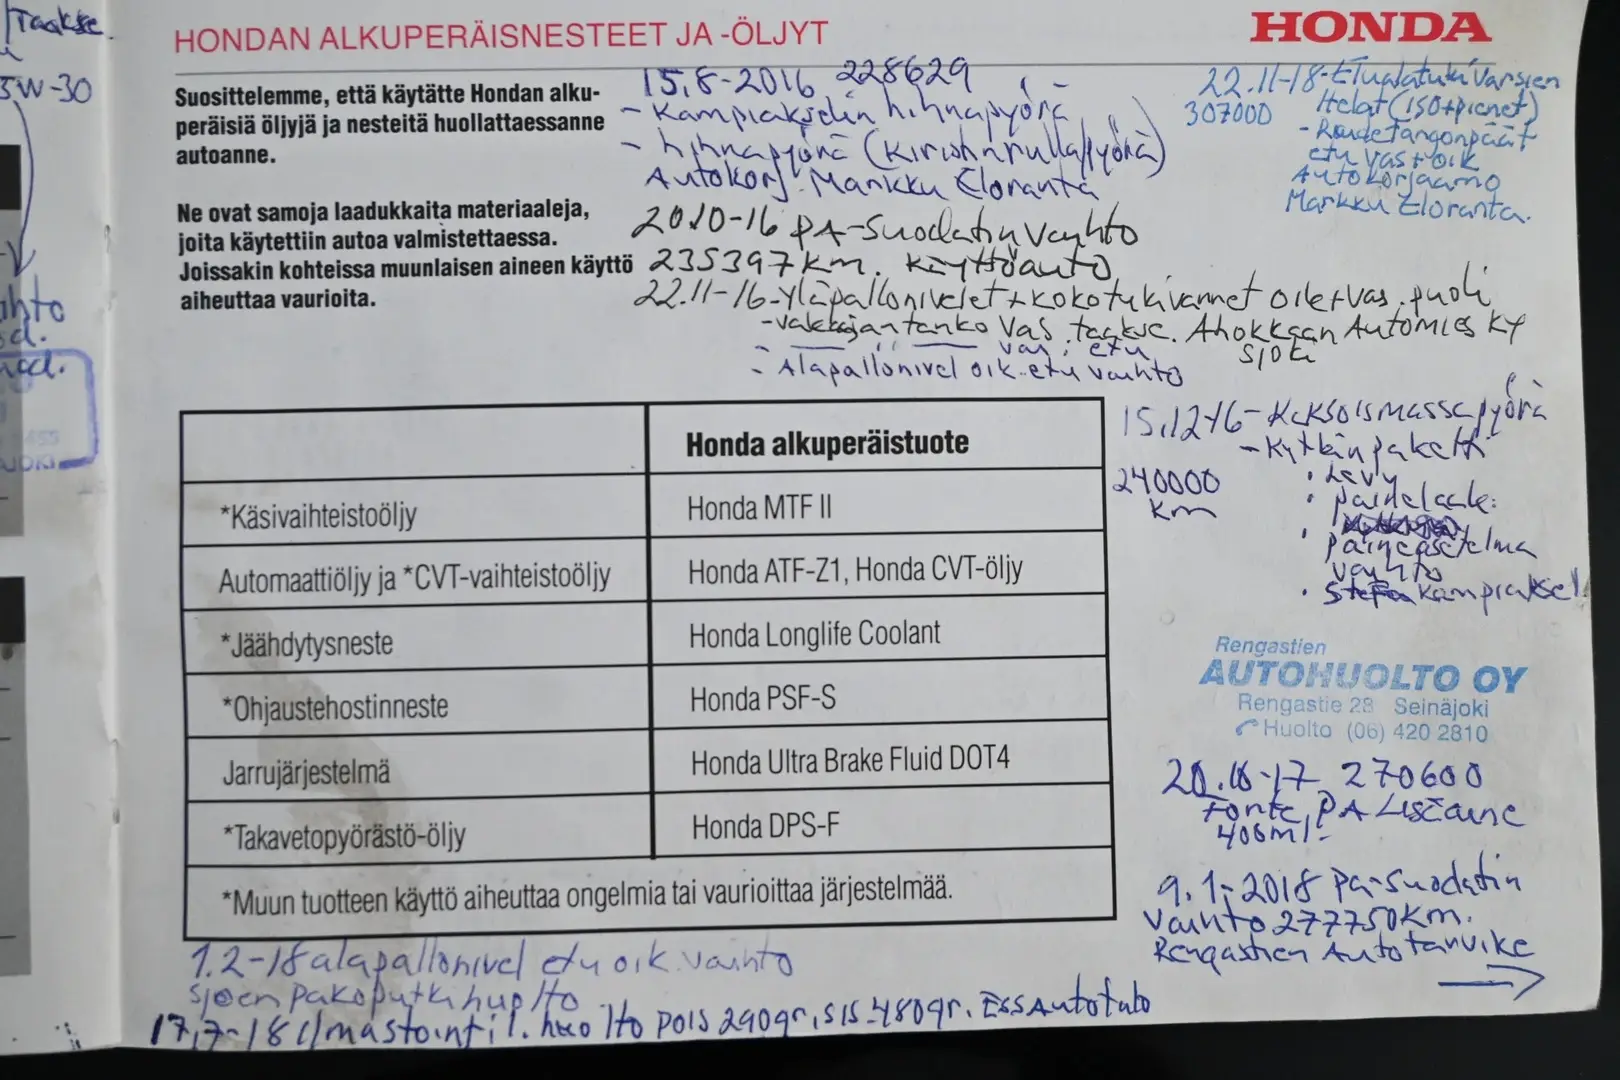 Taakse
5W-30
HONDAN ALKUPERÄISNESTEET JA -ÖLJYT
HONDA
Suosittelemme, että käytätte Hondan alku-
peräisiä öljyjä ja nesteitä huollattaessanne
autoanne.
Ne ovat samoja laadukkaita materiaaleja,
joita käytettiin autoa valmistettaessa.
Joissakin kohteissa muunlaisen aineen käyttö
aiheuttaa vaurioita.
15.8-2016 228629
- Kampiakselin hihnapyörä
- hihnapyörä (kiristinrullapyörä)
Autokorj. Markku Eloranta
20.10-16 PA-Suodatin vaihto
235397km. Käyttöauto
22.11-16-Yläpallonivelet+koko tukivarret oik+vas. puoli
- vakaajan tanko vas. taakse. Ahokkaan Automies ky
Sjoki
- vas. etu
- Alapallonivel oik. etu vaihto
22.11-18-Etualatukivarsien
307000 Helat (ISO+pienet)
- Raidetangonpäät
etu vas+oik
Autokorjaamo
Markku Eloranta.
15.12-16- Kaksoismassapyörä
- Kytkinpaketti
240000
km
• Levy
• painelaake:
• paineasetelma
vaihto
• kampiaksel
Honda alkuperäistuote
*Käsivaihteistoöljy Honda MTF II
Automaattiöljy ja *CVT-vaihteistoöljy Honda ATF-Z1, Honda CVT-öljy
*Jäähdytysneste Honda Longlife Coolant
*Ohjaustehostinneste Honda PSF-S
Jarrujärjestelmä Honda Ultra Brake Fluid DOT4
*Takavetopyörästö-öljy Honda DPS-F
*Muun tuotteen käyttö aiheuttaa ongelmia tai vaurioittaa järjestelmää.
Rengastien
AUTOHUOLTO OY
Rengastie 28 Seinäjoki
Huolto (06) 420 2810
20.10-17 270600
Forte, PA Lisäaine
400ml.
9.1-2018 PA-Suodatin
vaihto 277750km.
Rengastien Autotarvike
1.2-18 alapallonivel etu oik. vaihto
Sjoen pakoputkihuolto
17.7-18 ilmastointil. huolto pois 290gr, sis 480gr. EssAutotalo